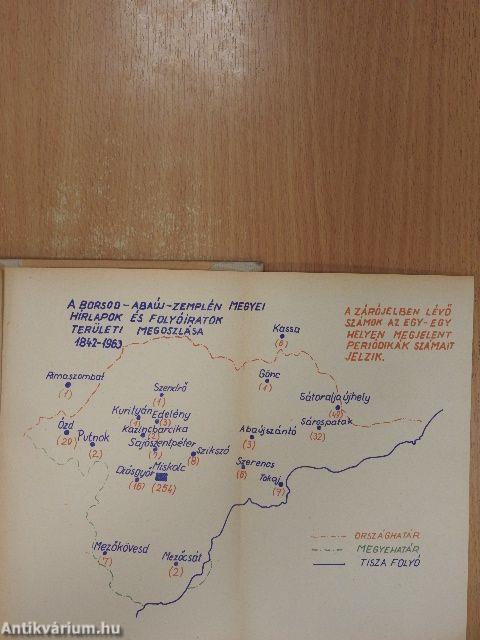 A BORSOD-ABAÚJ-ZEMPLÉN MEGYEI
HÍRLAPOK ÉS FOLYÓIRATOK
TERÜLETI MEGOSZLÁSA
1842-1963
A ZÁRÓJELBEN LÉVŐ
SZÁMOK AZ EGY-EGY
HELYEN MEGJELENT
PERIÓDIKÁK SZÁMAIT
JELZIK.
Kassa
(6)
Rimaszombat
(1)
Szendrő
(1)
Gönc
(1)
Sátoraljaújhely
Kurityán
Edelény
(3)
Kazincbarcika
Sajószentpéter
Ózd
(20)
Putnok
(2)
Szikszó
(8)
Abaújszántó
(3)
Sárospatak
(32)
Diósgyőr
(16)
Miskolc
(254)
Szerencs
Tokaj
(7)
Mezőkövesd
(7)
Mezőcsát
(2)
ORSZÁGHATÁR
MEGYEHATÁR
TISZA FOLYÓ
Antikvárium.hu